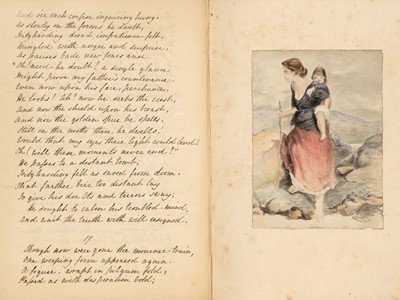 and o'er each corpse inquiring hung;
As slowly on the forms he dwelt,
Fitzharding dread impatience felt,
Mingled with anger and surprise,
As pauses bade new fears arise.
"Oh! need he doubt! a single glance
Might prove my father's countenance.
Even now upon his face, perchance,
He looks! Ah! now he seeks the crest,
and now the shield upon his breast,
and now the golden spur he spells,
Still on the motto there he dwells!
Would that my eyes there light could lend!
Oh! will these moments never end!"
He passes to a distant tomb;
Fitzharding felt as saved from doom.
That farther, tree too distant lay
To give his doubts and terrors sway;
He sought to calm his troubled mind,
and wait the truth with well resigned.
Though now were gone the mourner-train,
One weeping form appeared again.
A figure, wrapt in pilgrim fold,
Passed as with desperation bold;